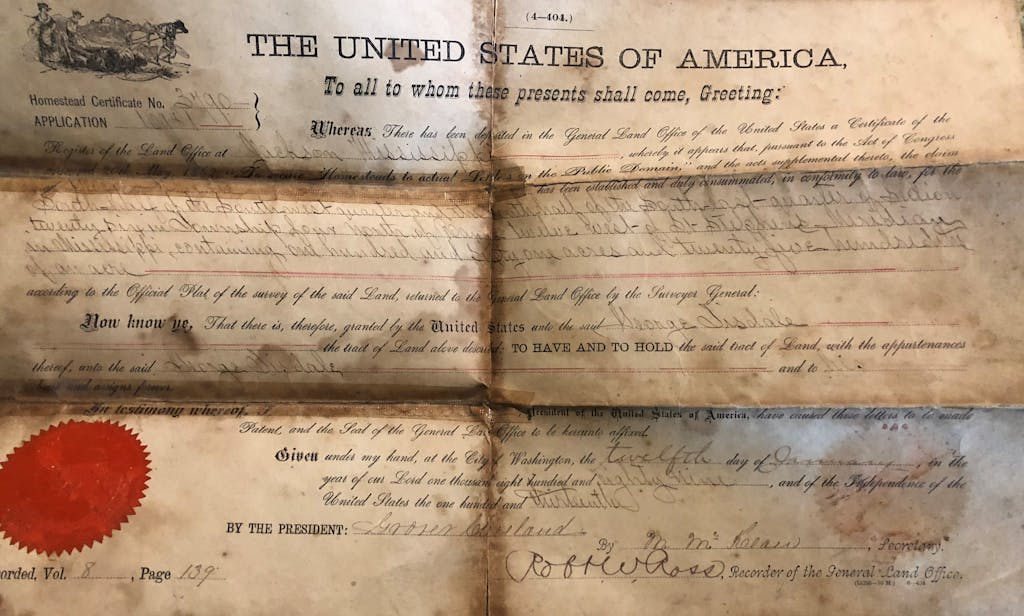 (4—404.)
THE UNITED STATES OF AMERICA,
To all to whom these presents shall come, Greeting:
Homestead Certificate No. 3790
APPLICATION
Whereas There has been deposited in the General Land Office of the United States a Certificate of the
Register of the Land Office at Jackson Mississippi, whereby it appears that, pursuant to the Act of Congress
Homesteads to actual Settlers on the Public Domain," and the acts supplemental thereto, the claim
has been established and duly consummated, in conformity to law, for the
half of the South East quarter of Section
twenty six in Township four north of Range twelve West of St Stephens Meridian
in Mississippi, containing one hundred and sixty one acres and twenty five hundredths
of an acre
according to the Official Plat of the survey of the said Land, returned to the General Land Office by the Surveyor General:
Now know ye, That there is, therefore, granted by the United States unto the said George Tisdale
the tract of Land above described: TO HAVE AND TO HOLD the said tract of Land, with the appurtenances
thereof, unto the said George Tisdale and to his
heirs and assigns forever.
In testimony whereof, I President of the United States of America, have caused these letters to be made
Patent, and the Seal of the General Land Office to be hereunto affixed.
Given under my hand, at the City of Washington, the twelfth day of January, in the
year of our Lord one thousand eight hundred and eighty nine, and of the Independence of the
United States the one hundred and thirteenth
BY THE PRESIDENT: Grover Cleveland
By M. McKean, Secretary.
Robt W Ross, Recorder of the General Land Office.
orded, Vol. 8, Page 139